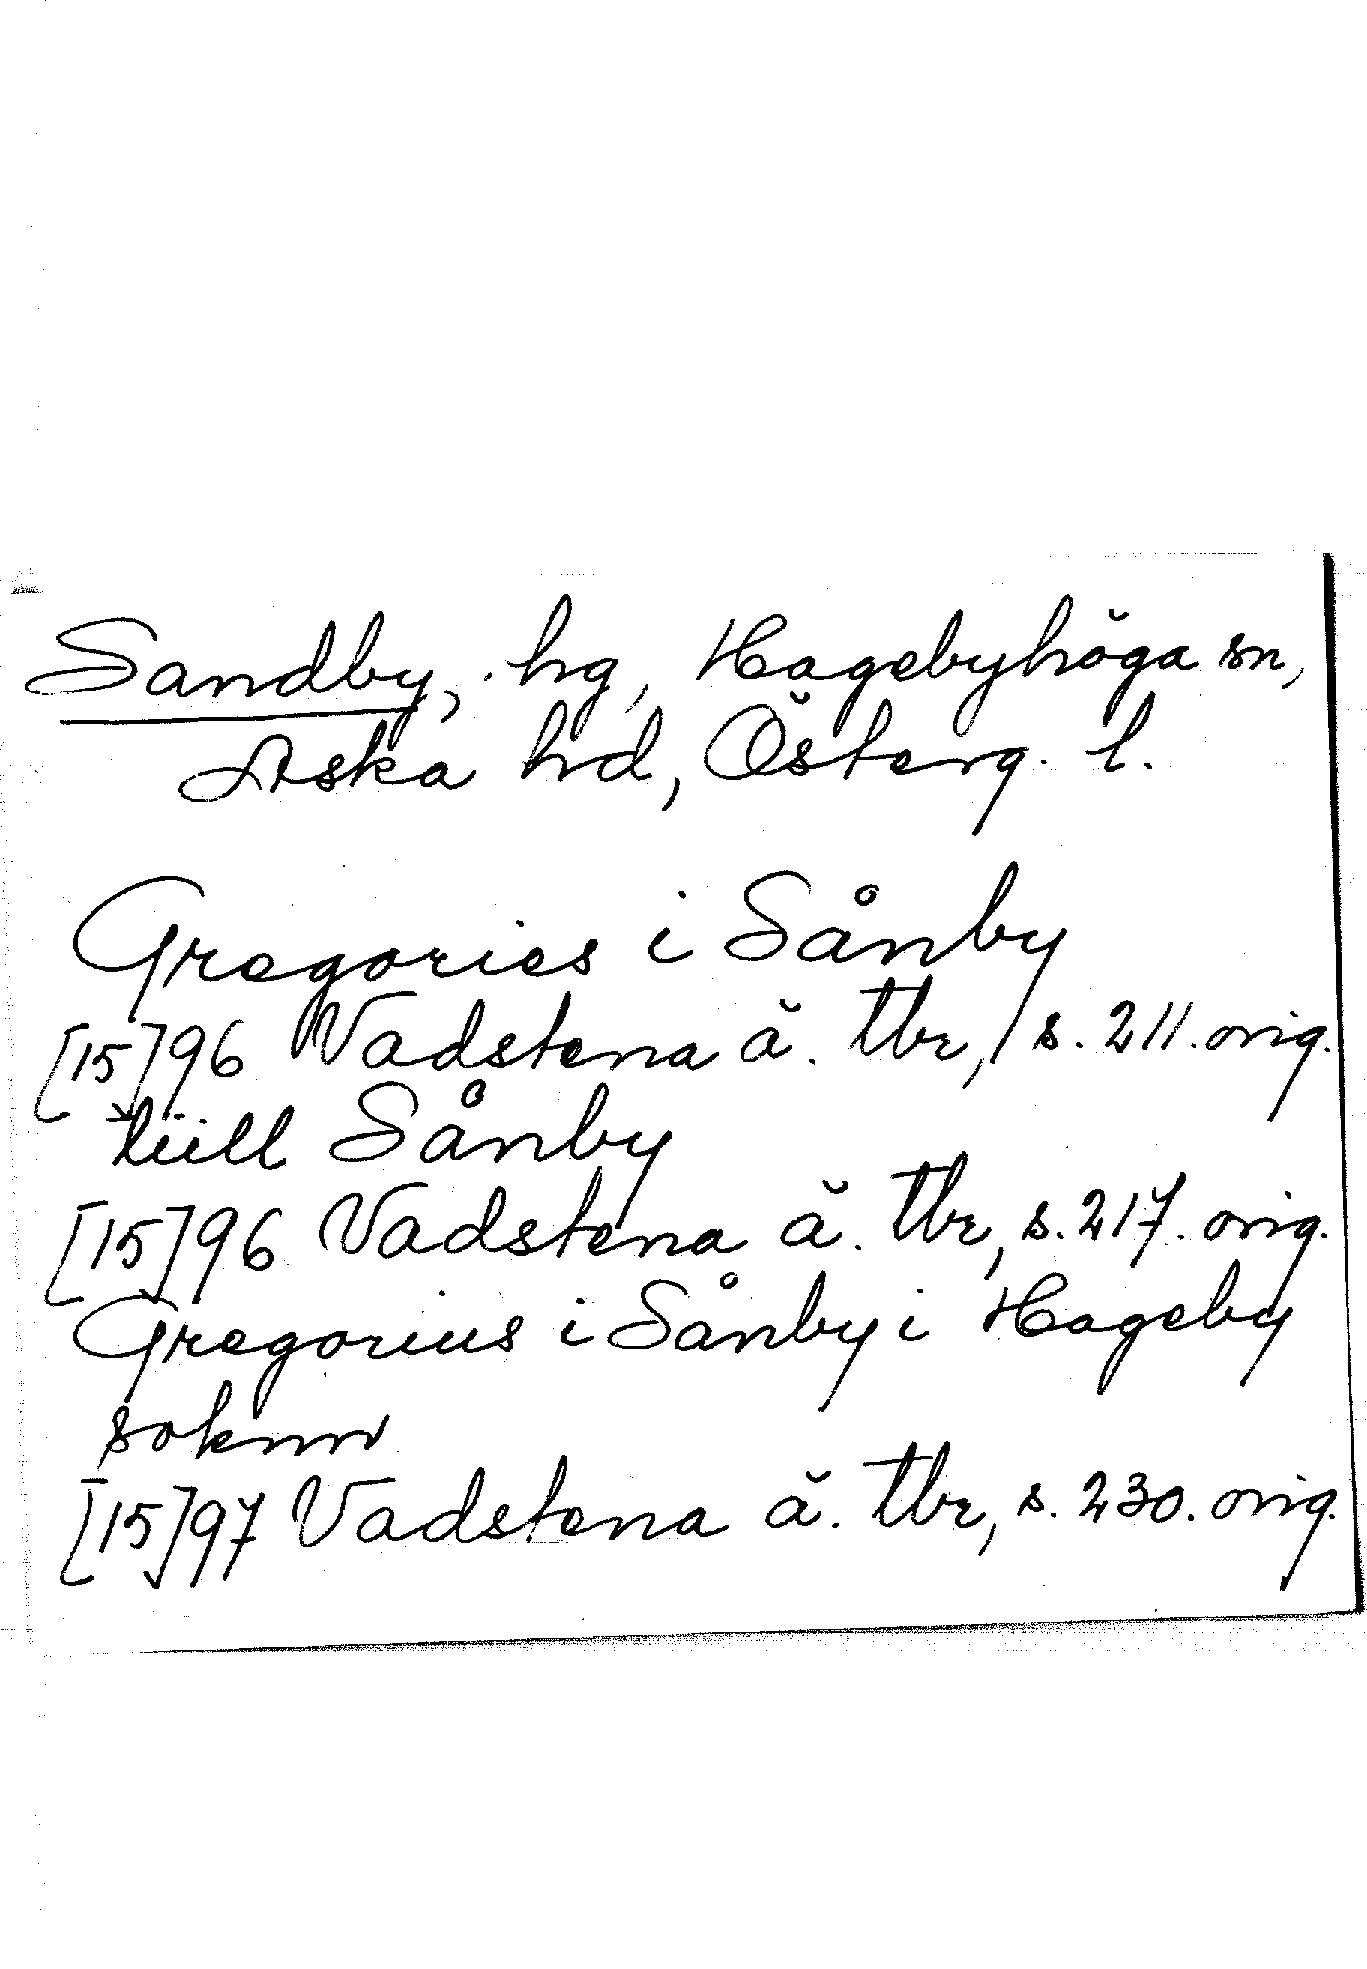 Sandby, hg, Hagebyhöga sn,
Aska hd, Österg. l.
Gregories i Sånby
[15]96 Vadstena ä. tbr, s. 211. orig.
tiill Sånby
[15]96 Vadstena ä. tbr, s. 217. orig.
Gregorius i Sånby i Hageby
soknn
[15]97 Vadstena ä. tbr, s. 230. orig.